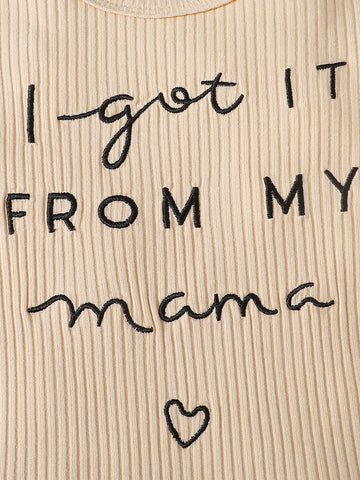 I got IT
FROM MY
mama